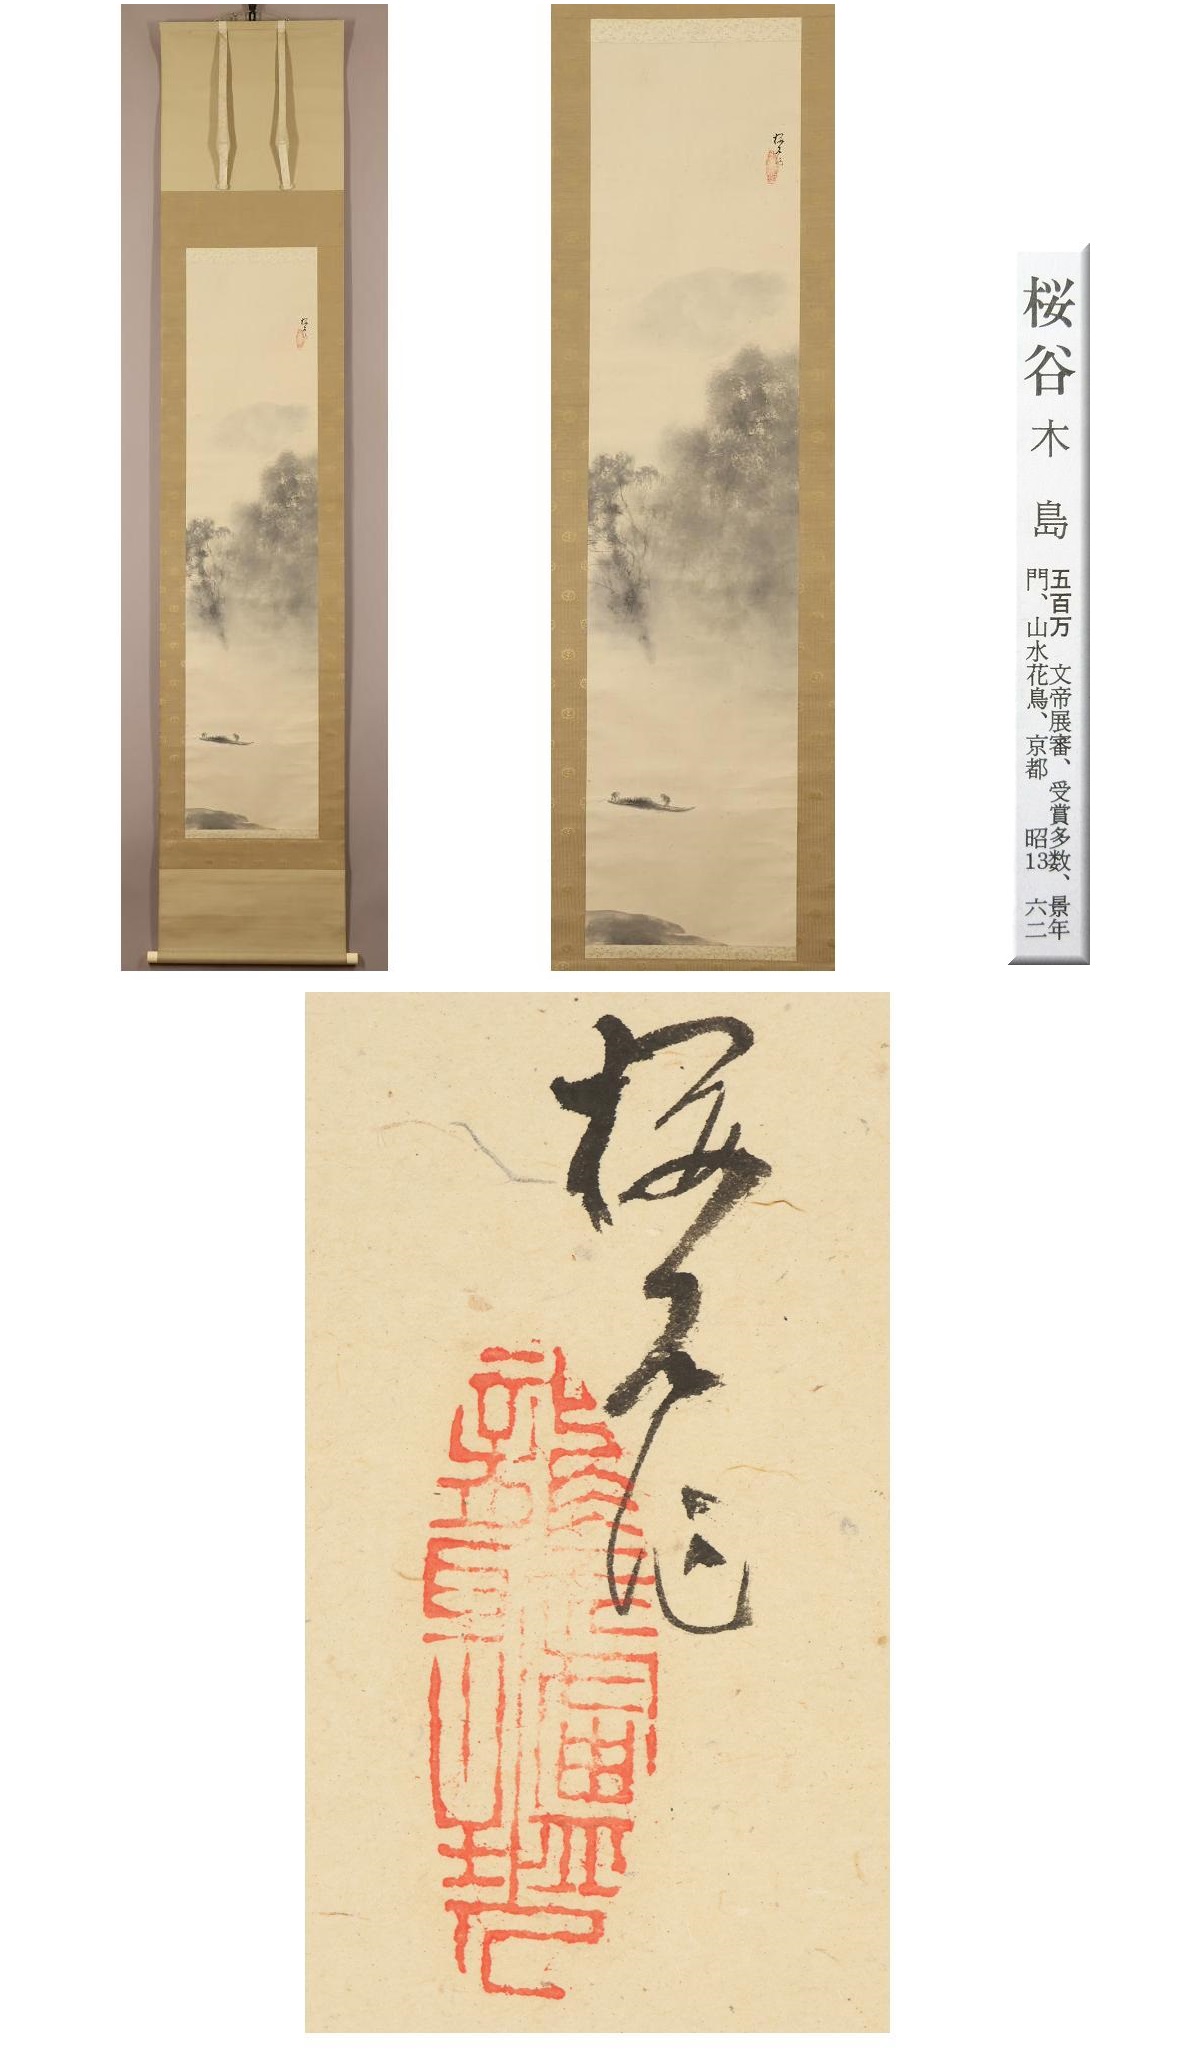 桜谷 木島
五百万 文帝展審、受賞多数、景年
門、山水花鳥、京都 昭13 六二
桜谷